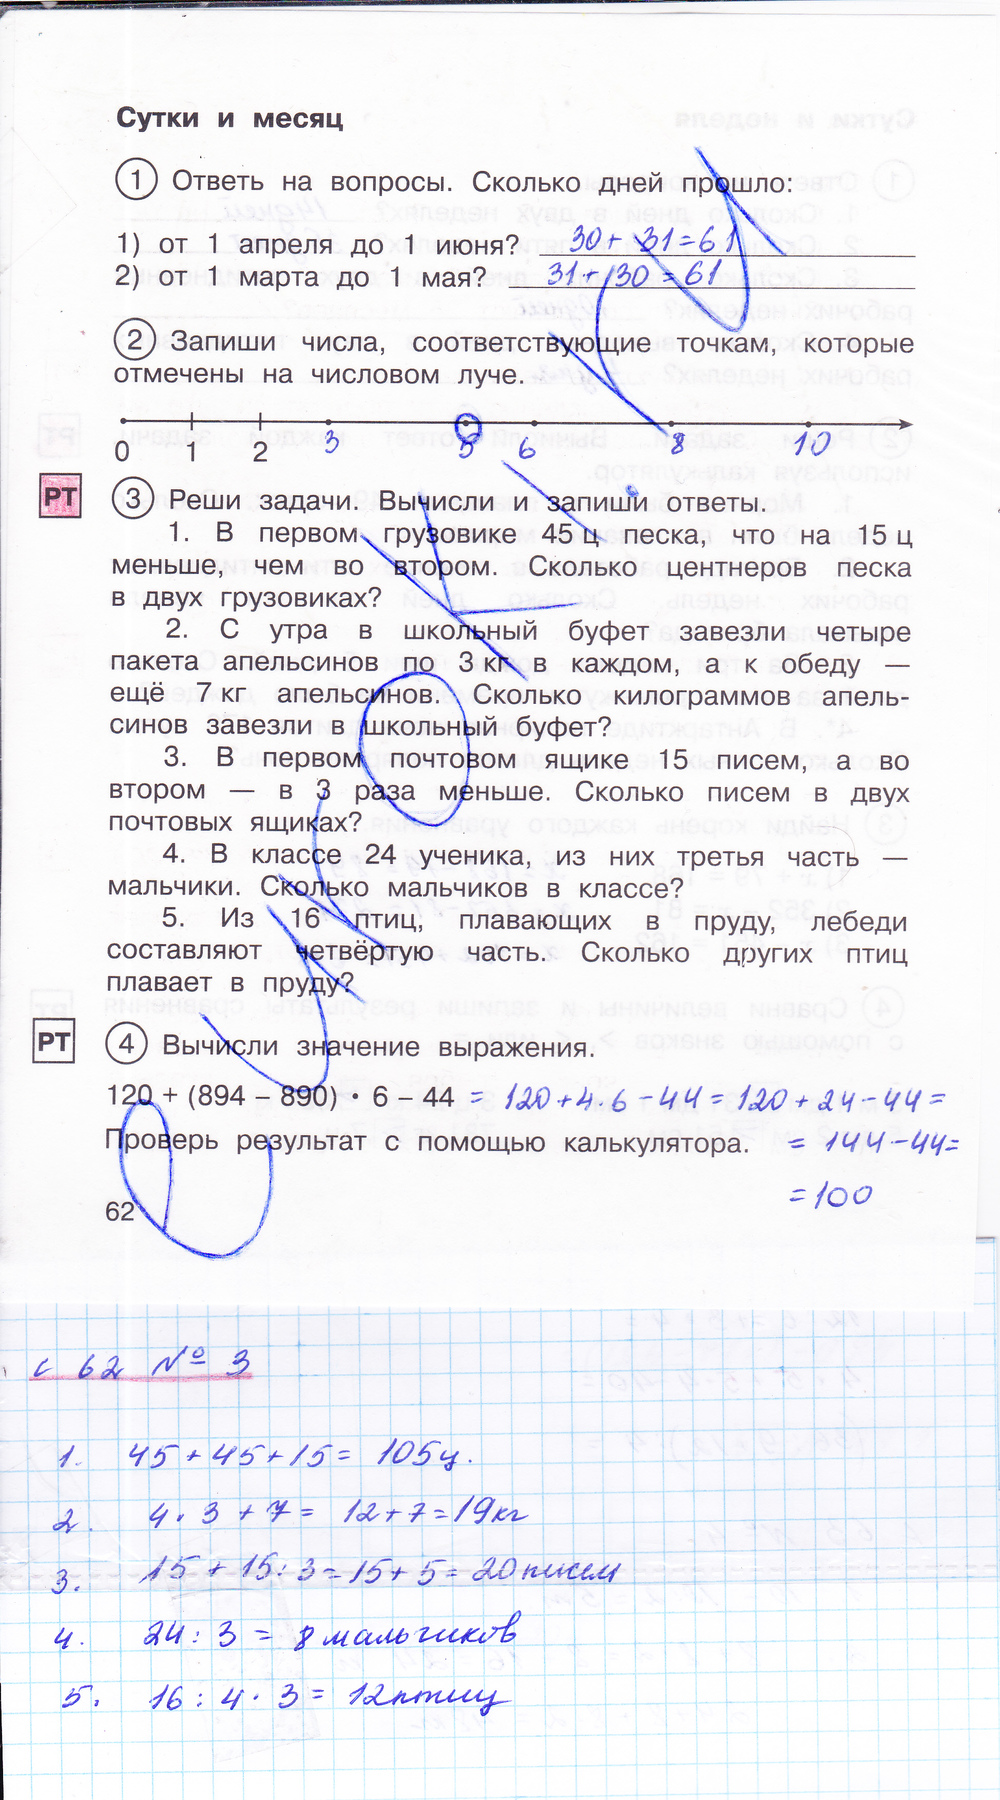 Сутки и месяц
1 Ответь на вопросы. Сколько дней прошло:
1) от 1 апреля до 1 июня? 30 + 31 = 61
2) от 1 марта до 1 мая? 31 + 30 = 61
2 Запиши числа, соответствующие точкам, которые
отмечены на числовом луче.
0 1 2 3 5 6 8 10
РТ 3 Реши задачи. Вычисли и запиши ответы.
1. В первом грузовике 45 ц песка, что на 15 ц
меньше, чем во втором. Сколько центнеров песка
в двух грузовиках?
2. С утра в школьный буфет завезли четыре
пакета апельсинов по 3 кг в каждом, а к обеду —
ещё 7 кг апельсинов. Сколько килограммов апель-
синов завезли в школьный буфет?
3. В первом почтовом ящике 15 писем, а во
втором — в 3 раза меньше. Сколько писем в двух
почтовых ящиках?
4. В классе 24 ученика, из них третья часть —
мальчики. Сколько мальчиков в классе?
5. Из 16 птиц, плавающих в пруду, лебеди
составляют четвёртую часть. Сколько других птиц
плавает в пруду?
РТ 4 Вычисли значение выражения.
120 + (894 – 890) · 6 – 44 = 120 + 4 · 6 – 44 = 120 + 24 – 44 =
Проверь результат с помощью калькулятора. = 144 – 44 =
= 100
62
с 62 № 3
1. 45 + 45 + 15 = 105 ц.
2. 4 · 3 + 7 = 12 + 7 = 19 кг
3. 15 + 15 : 3 = 15 + 5 = 20 писем
4. 24 : 3 = 8 мальчиков
5. 16 : 4 · 3 = 12 птиц